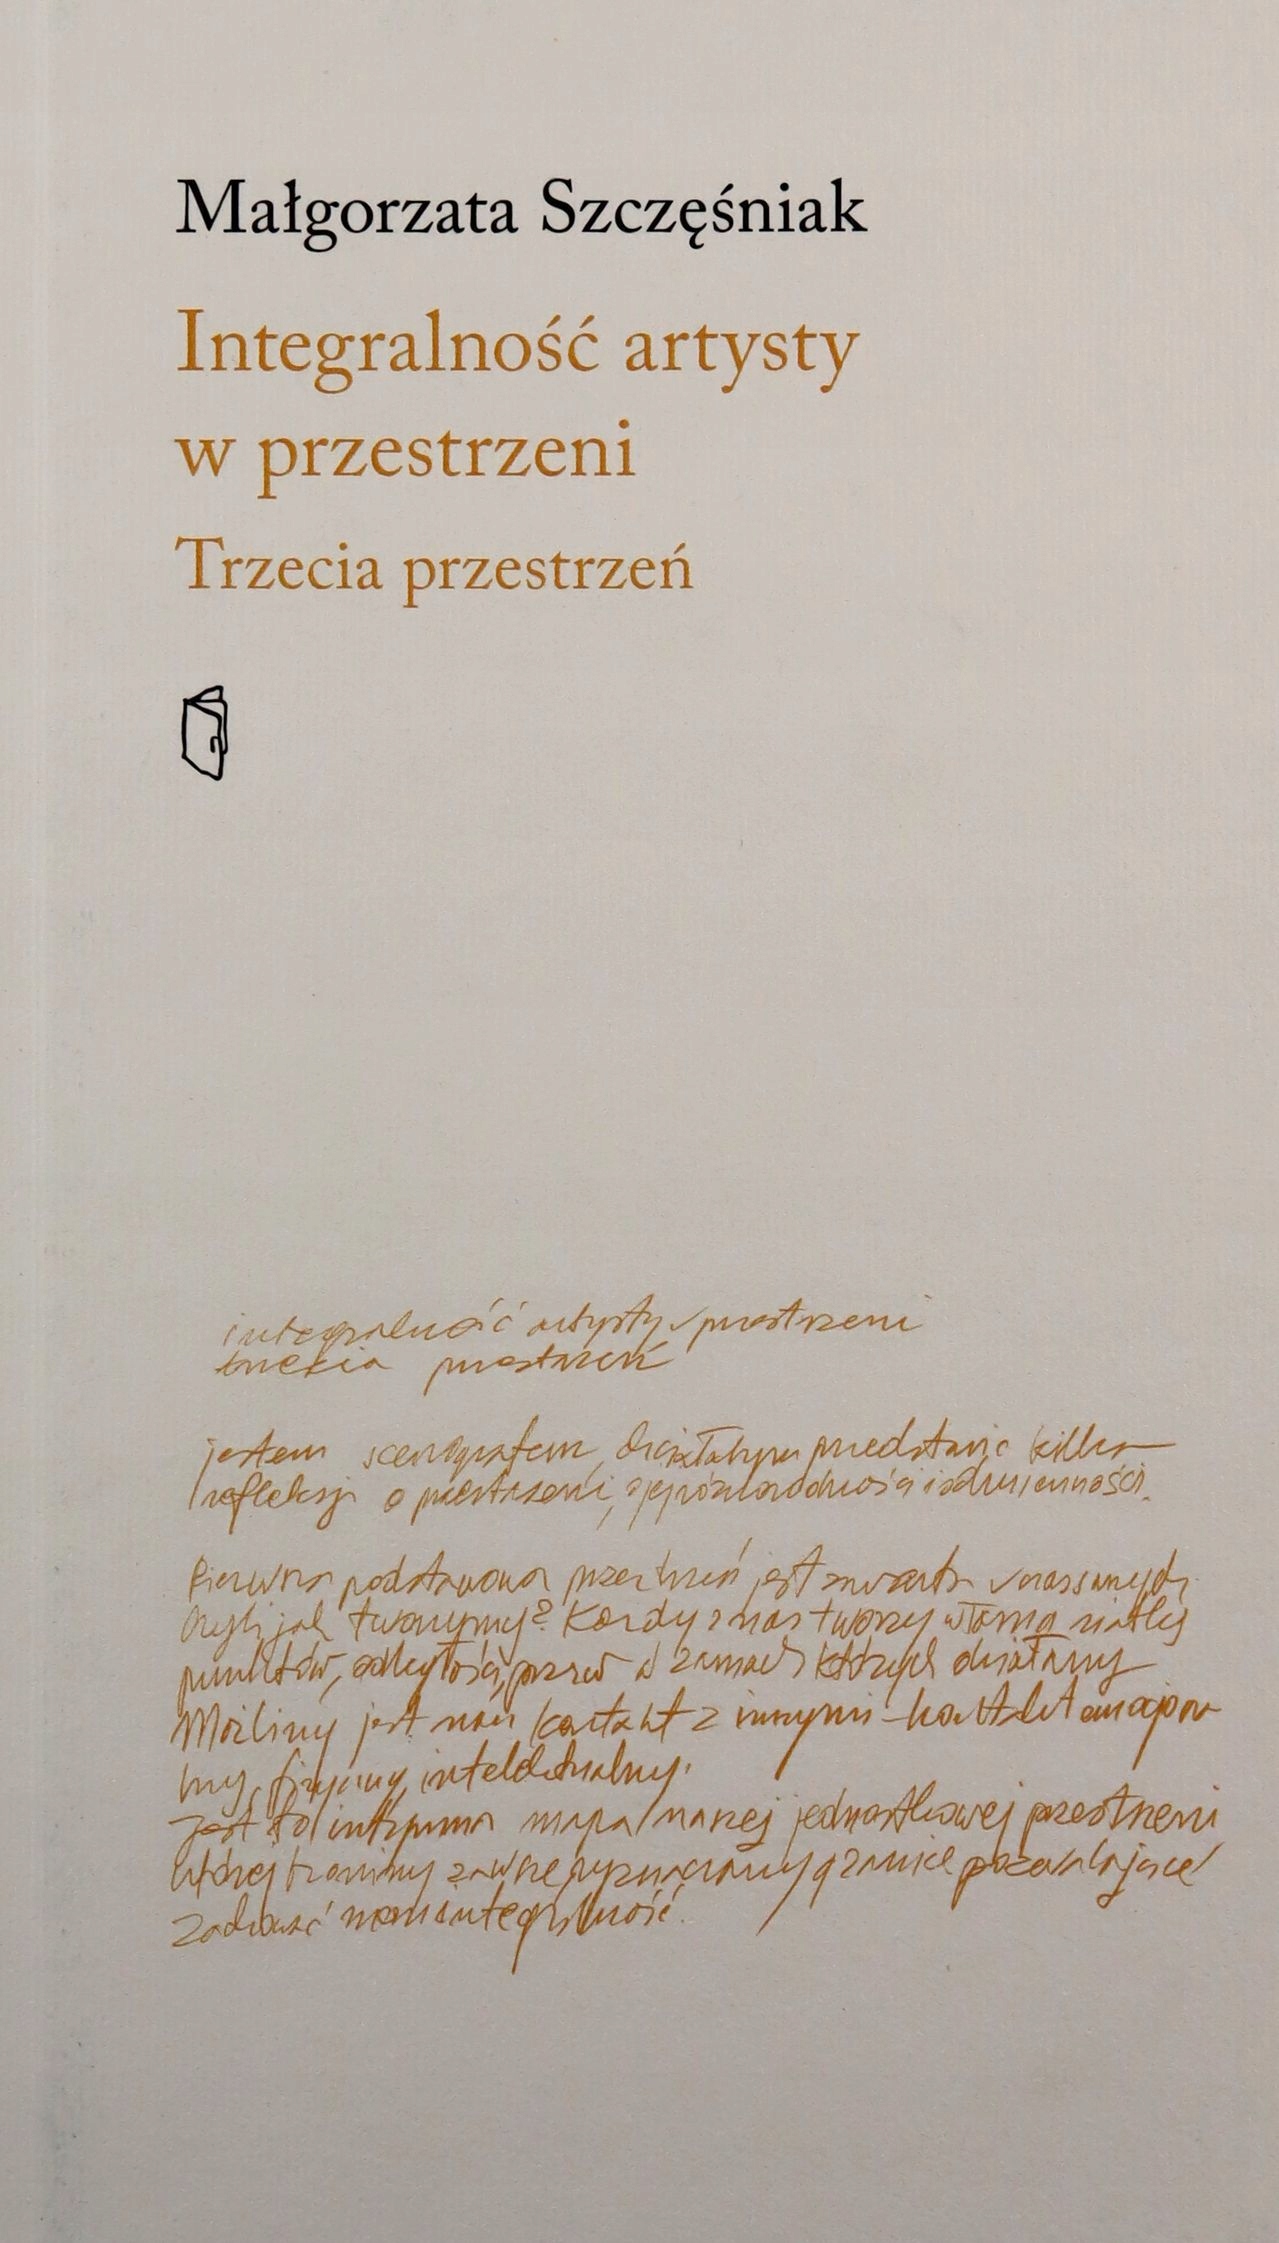 Małgorzata Szczęśniak
Integralność artysty
w przestrzeni
Trzecia przestrzeń
integralność artysty w przestrzeni
trzecia przestrzeń
jestem scenografem, chciałabym przedstawić kilka
refleksji o przestrzeni, jej różnorodności i odmienności.
Pierwsza podstawowa przestrzeń jest zawarta w nas samych
czyli jak tworzymy? Każdy z nas tworzy własną siatkę
punktów, odległości, przerw w ramach których działamy
Możliwy jest nasz kontakt z innymi – kontakt emocjonal
ny, fizyczny, intelektualny.
Jest to intymna mapa naszej jednostkowej przestrzeni
której bronimy zawsze wyznaczamy granice pozwalające
zachować nam integralność.